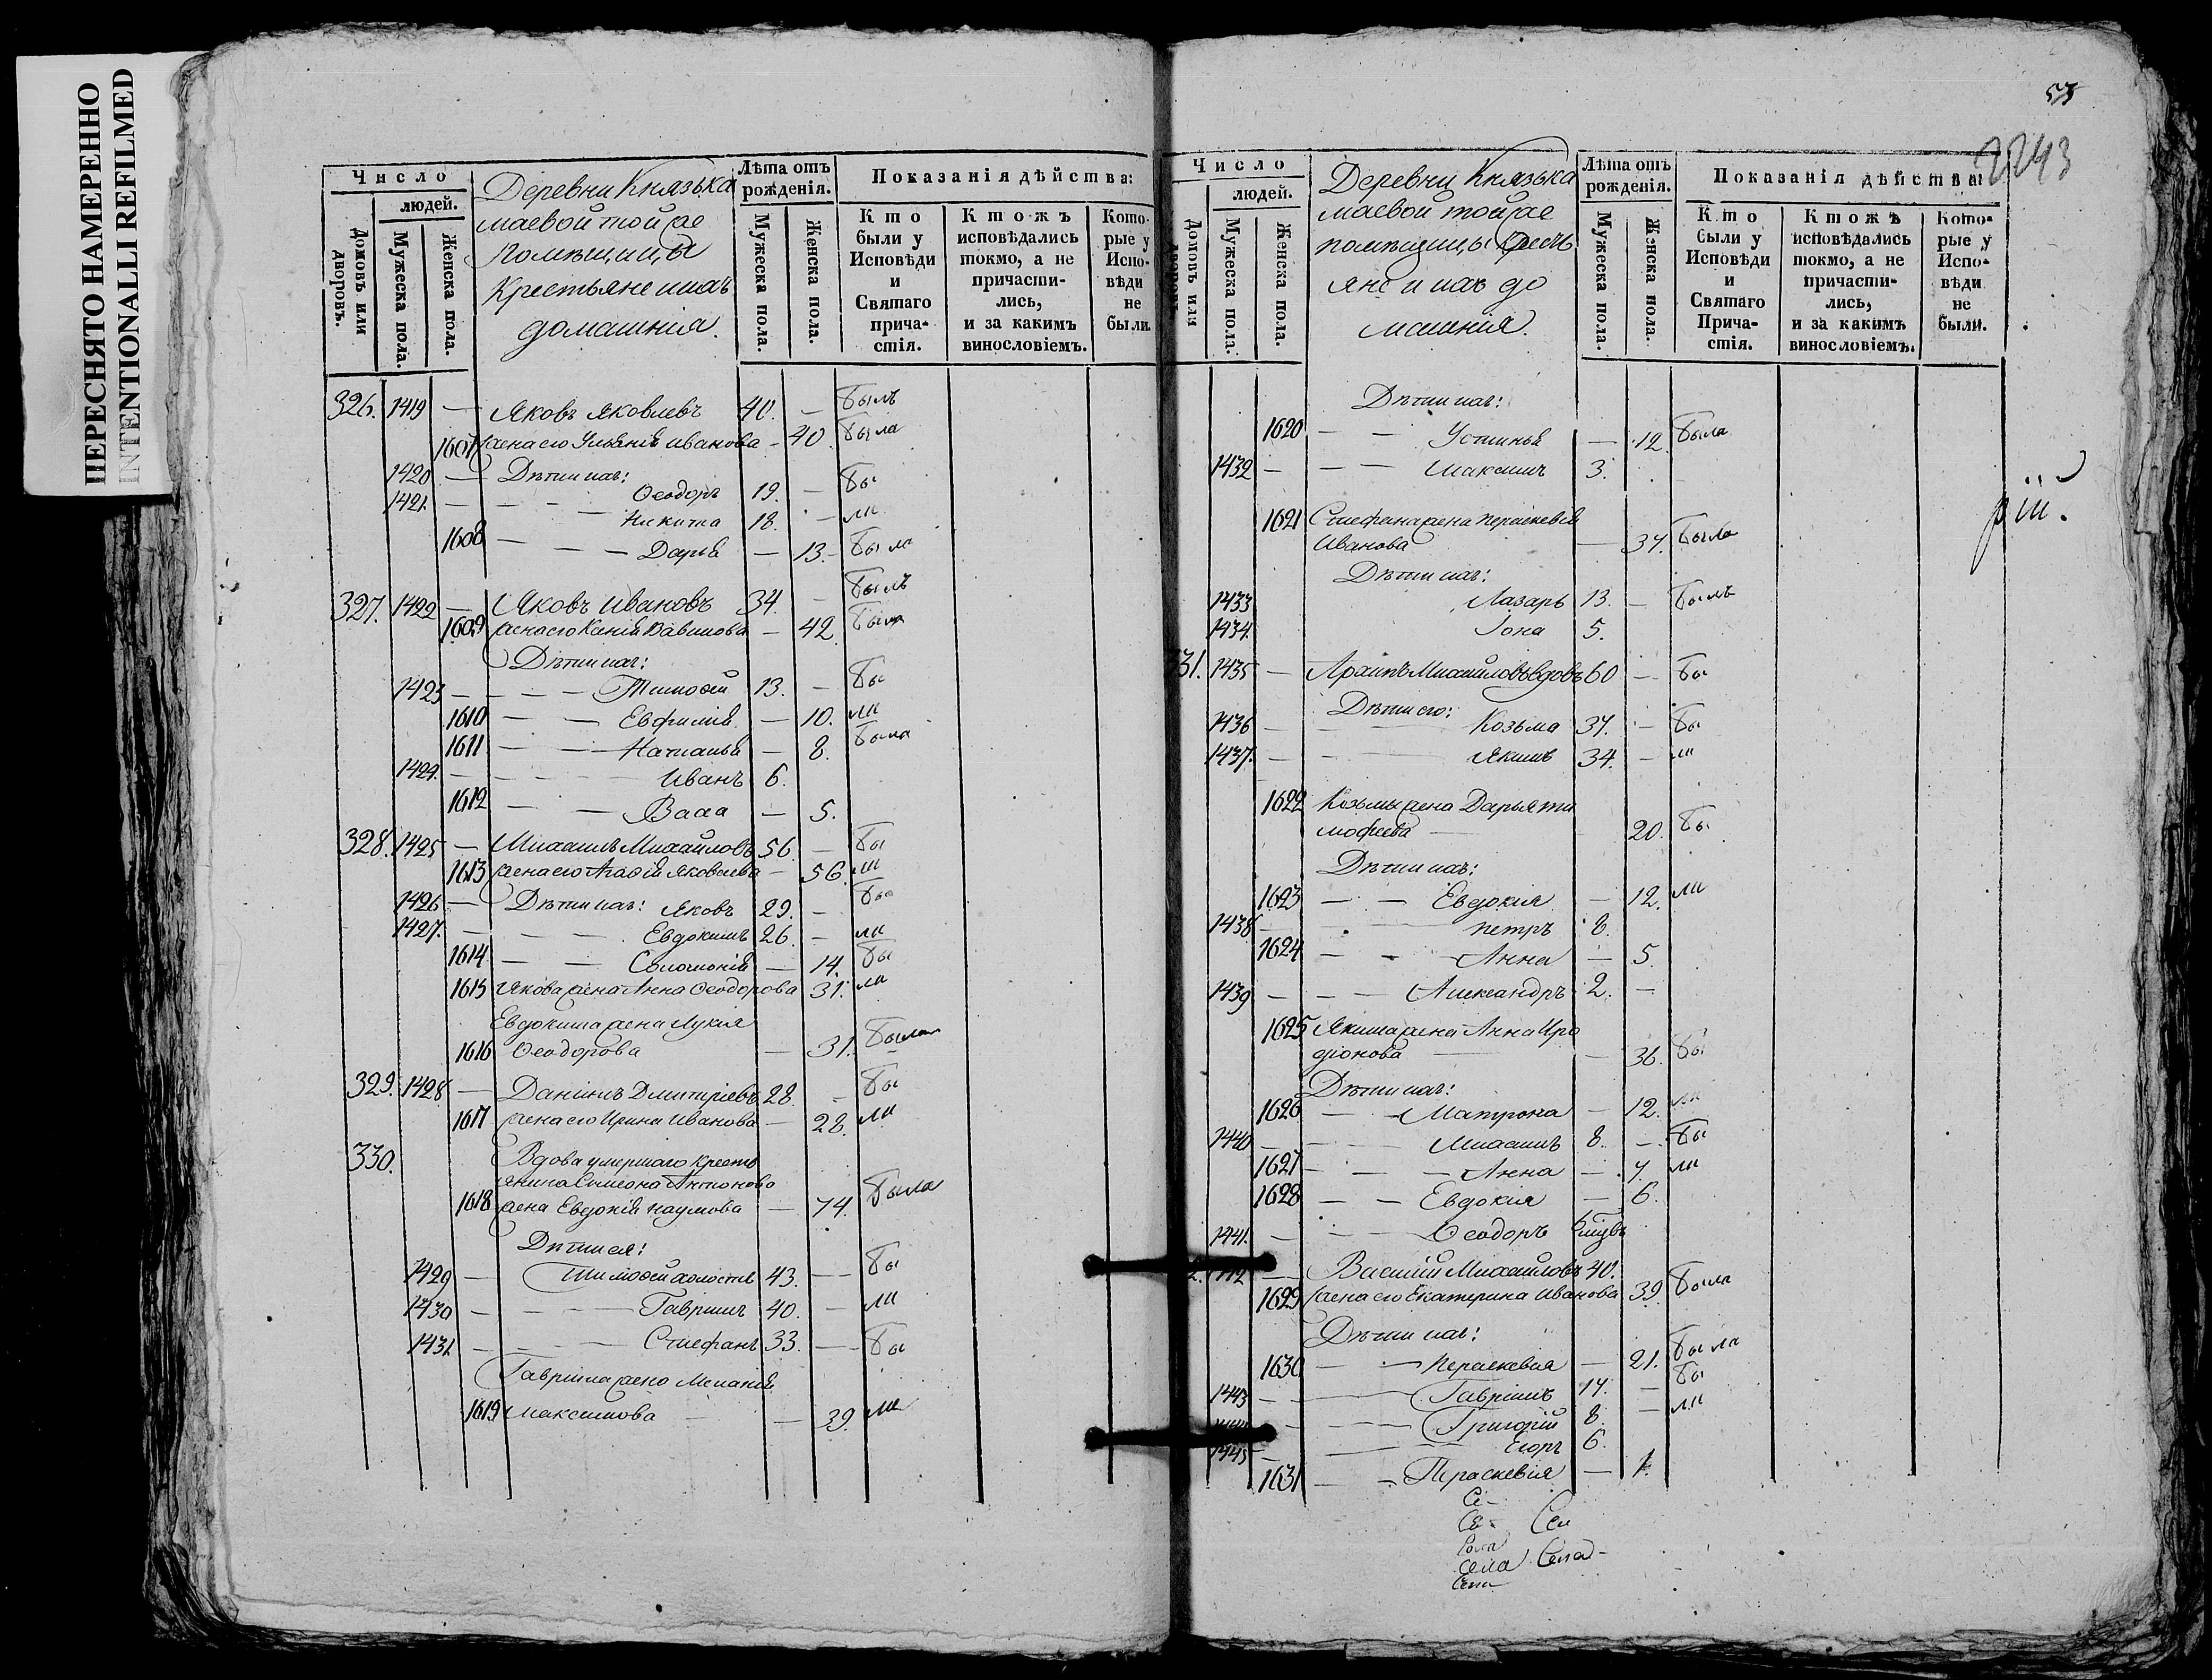 ПЕРЕСНЯТО НАМЕРЕННО
INTENTIONALLI REFILMED
Число
людей.
Домовъ или дворовъ.
Мужеска пола.
Женска пола.
Деревни Князька
маевой той же
Помѣщицы
Крестьяне ихъ
домашнія.
Лѣта отъ рожденія.
Мужеска пола.
Женска пола.
Показанія дѣйства:
Кто были у Исповѣди и Святаго причастія.
Ктожъ исповѣдались токмо, а не причастились, и за какимъ винословіемъ.
Которые у Исповѣди не были.
326. 1419 — Яковъ Яковлевъ 40. — Былъ
1607 жена его Ульянія Иванова — 40. Была
Дѣти ихъ:
1420 — Ѳеодоръ 19. — Бы
1421. — Никита 18. — ли
1608 — Дарья — 13. — Была
327. 1422 — Яковъ Ивановъ 34. — Былъ
1609 жена его Вавилова — 42. Была
Дѣти ихъ:
1423 — Тимоѳей 13. — Бы
1610 — Евфимія — 10. ли
1611 — Наталья — 8. Была
1424. — Иванъ 6.
1612 — Васса — 5.
328. 1425 — Михаилъ Михайловъ 56. — Бы
1613 жена его Агафія Яковлева — 56. ли
1426 — Дѣти ихъ: Яковъ 29. — Бы
1427. — Евдокимъ 26. — ли
1614 — Соломонія — 14. Бы
1615 Якова жена Анна Ѳеодорова 31. ли
Евдокима жена Лукія
1616 Ѳеодорова — 31. Была
329. 1428 — Даніилъ Дмитріевъ 28. — Бы
1617 жена его Ирина Иванова — 28. ли
330. Вдова умершаго кресть
янина Симеона Антонова
1618 жена Евдокія Наумова — 74. Была
Дѣти ея:
1429 — Тимоѳей холостъ 43. — Бы
1430 — Гавріилъ 40. — ли
1431. — Стефанъ 33. — Бы
Гавріила жена Меланія
1619 Максимова — 39. ли
53
2243
Число
людей.
Домовъ или дворовъ.
Мужеска пола.
Женска пола.
Деревни Князька
маевой той же
помѣщицы Кресть
яне и ихъ до
машнія.
Лѣта отъ рожденія.
Мужеска пола.
Женска пола.
Показанія дѣйства:
Кто были у Исповѣди и Святаго Причастія.
Ктожъ исповѣдались токмо, а не причастились, и за какимъ винословіемъ.
Которые у Исповѣди не были.
Дѣти ихъ:
1620 — Устинья — 12. Была
1432 — Максимъ 3.
1621 Стефана жена Параскевія
Иванова — 37. Была
Дѣти ихъ:
1433 Лазарь 13. — Былъ
1434. Іона 5.
331. 1435 — Архипъ Михайловъ вдовъ 60 — Бы
Дѣти его:
1436 — Козьма 37. — Бы
1437. — Якимъ 34. — ли
1622 Козьмы жена Дарья Ти
мофеева — 20. Бы
Дѣти ихъ:
1623 — Евдокія — 12. ли
1438 — Петръ 8.
1624 — Анна — 5.
1439 — Александръ 2. —
1625 Якима жена Анна Иро
діонова — 36. Бы
Дѣти ихъ:
1626 — Матрона — 12. ли
1440 — Михаилъ 8. — Бы
1627 — Анна — 7. ли
1628 — Евдокія — 6.
1441. — Ѳеодоръ
Василій Михайловъ 40.
1629 жена его Екатерина Иванова 39. Была
Дѣти ихъ:
1630 — Параскевія — 21. Была
1443 — Гавріилъ 14. — Бы
Григорій 8. — ли
1445 — Егоръ 6.
1631 — Параскевія — 1.
Се-
Се- Сел
Села Села-